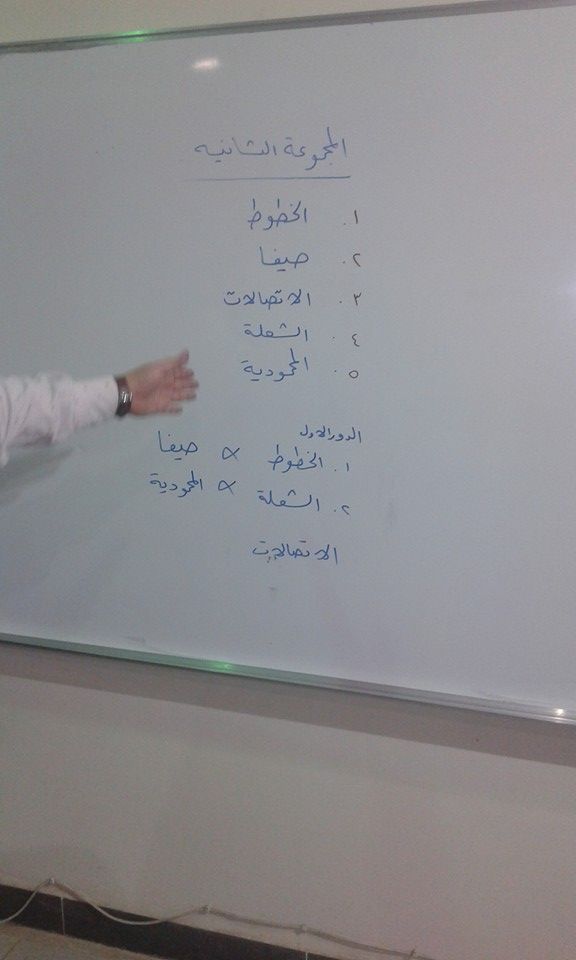 المجموعة الثانيه
١. الخطوط
٢. صيفا
٣. الاتصالات
٤. الشعلة
٥. المحمودية
الدور الاول
١. الخطوط ∝ صيفا
٢. الشعلة ∝ المحمودية
الاتصالات